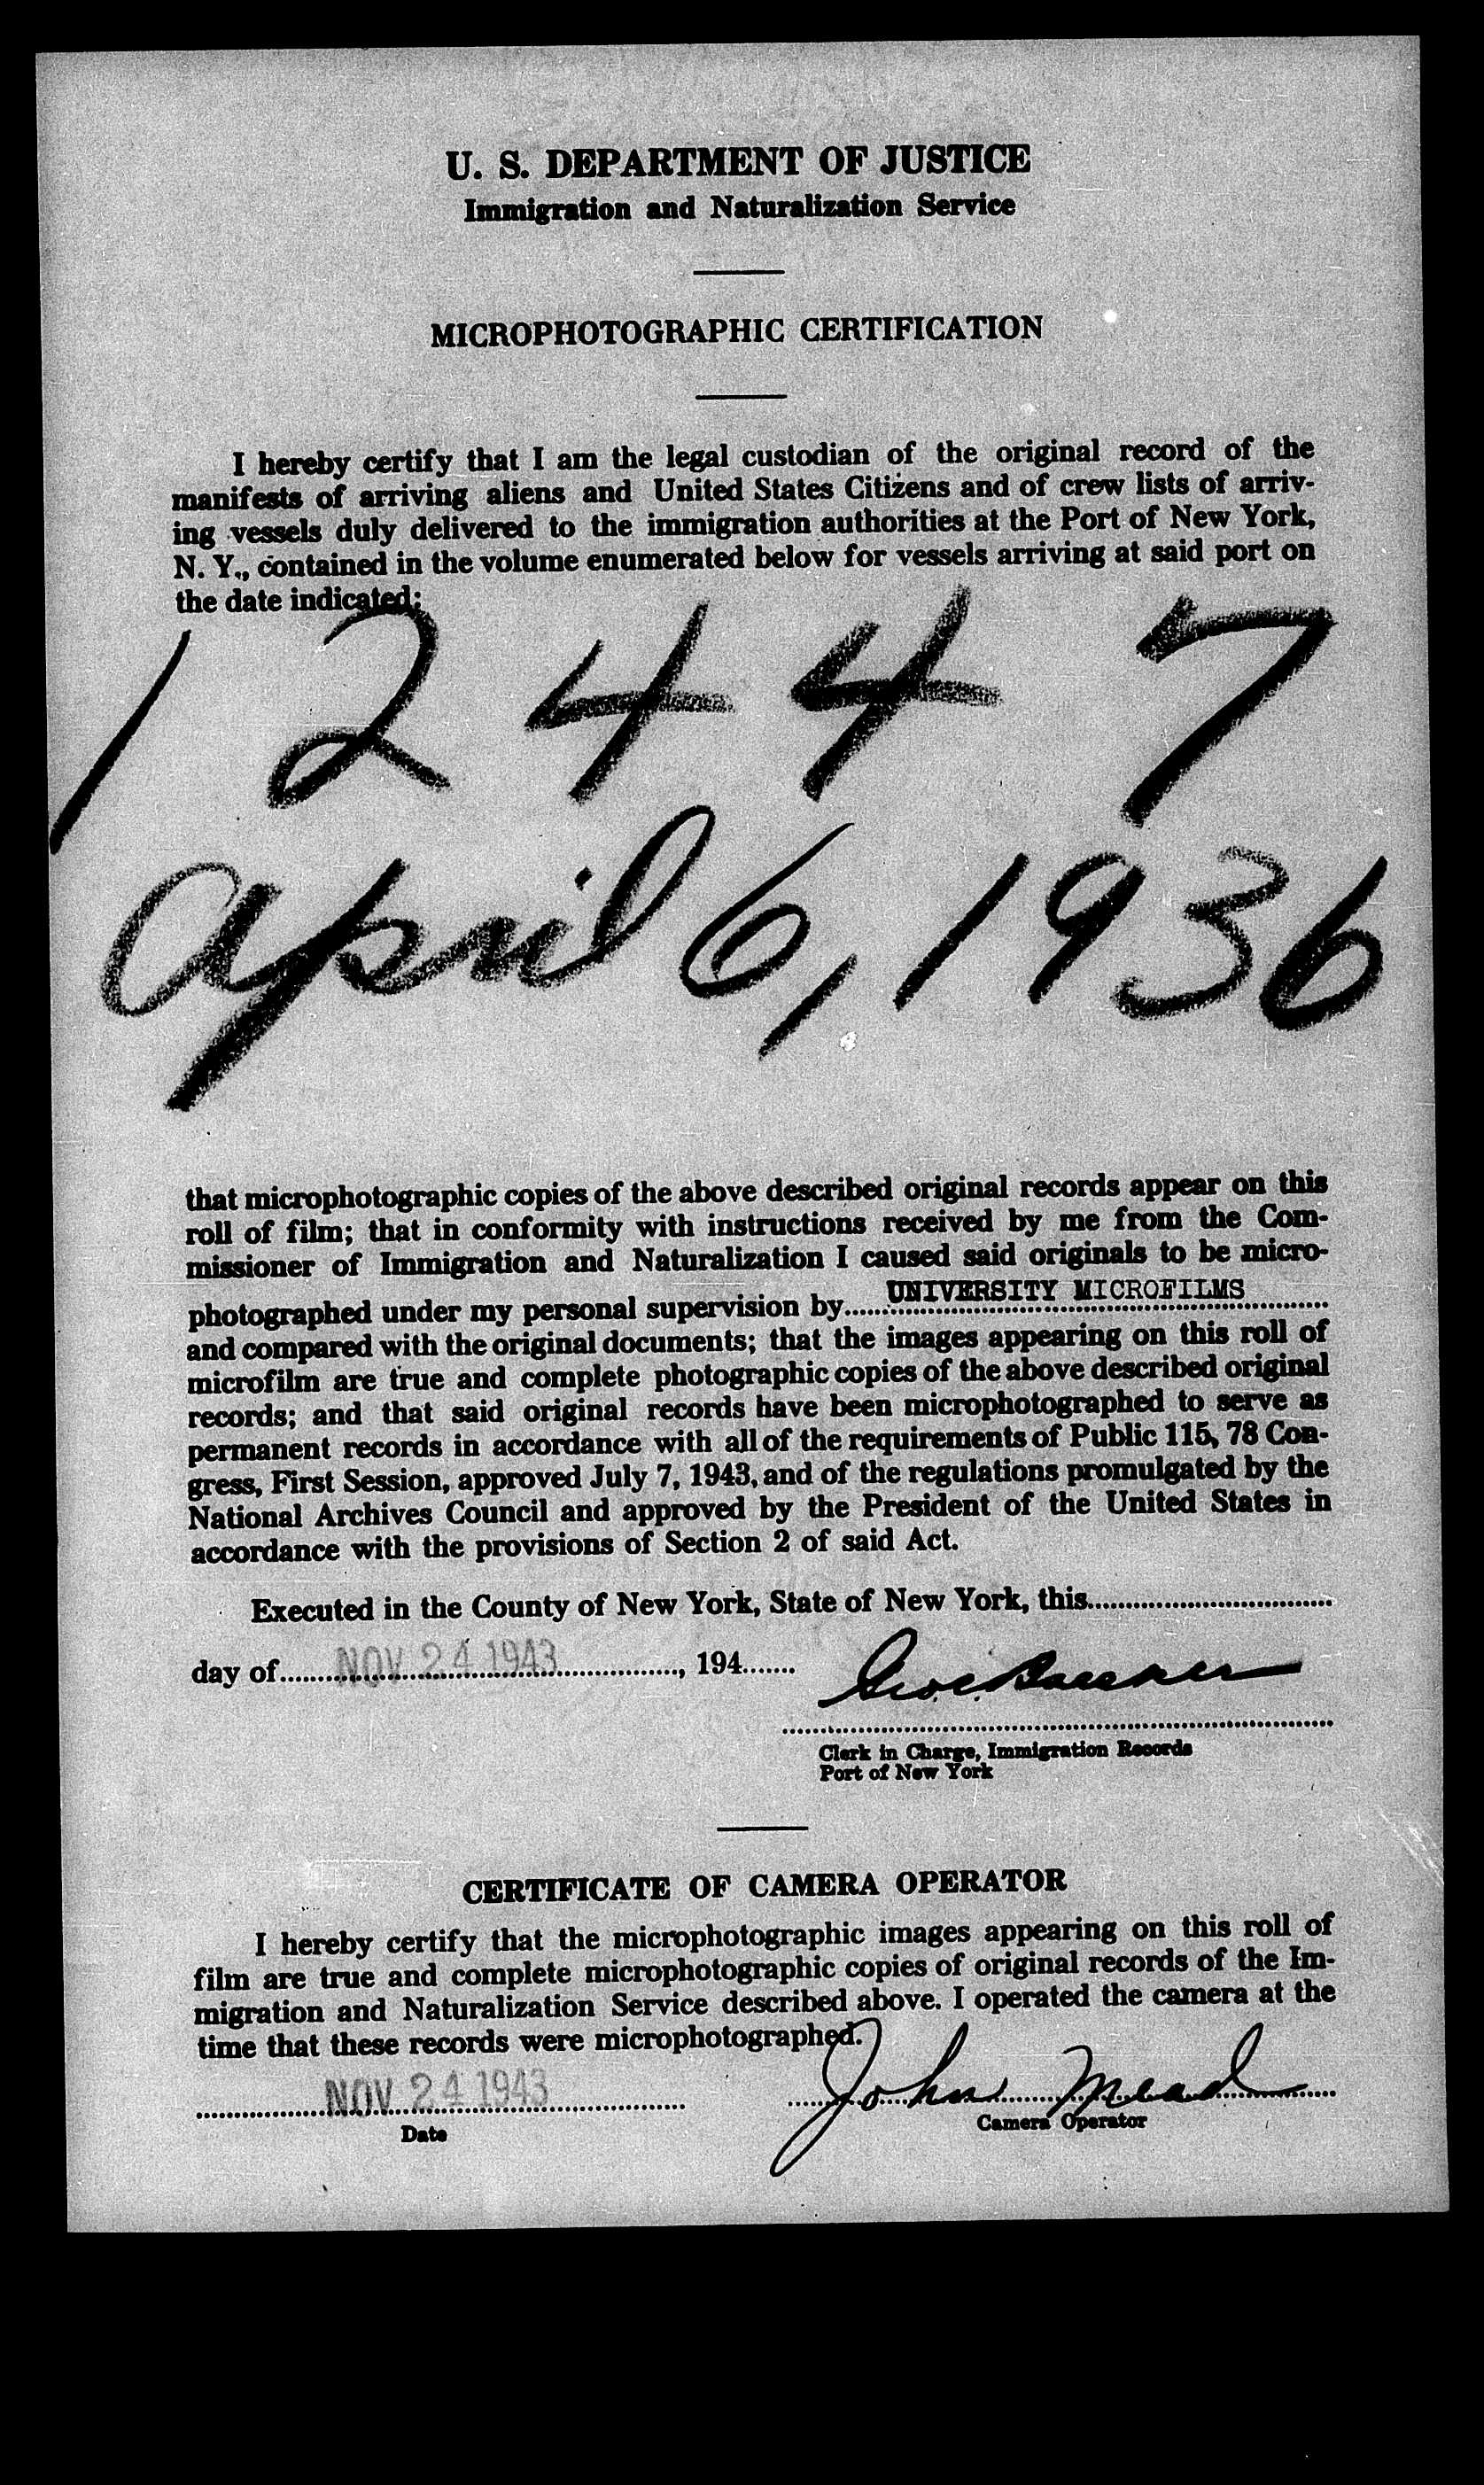 U. S. DEPARTMENT OF JUSTICE
Immigration and Naturalization Service
MICROPHOTOGRAPHIC CERTIFICATION
I hereby certify that I am the legal custodian of the original record of the
manifests of arriving aliens and United States Citizens and of crew lists of arriv-
ing vessels duly delivered to the immigration authorities at the Port of New York,
N. Y., contained in the volume enumerated below for vessels arriving at said port on
the date indicated:
12447
April 6, 1936
that microphotographic copies of the above described original records appear on this
roll of film; that in conformity with instructions received by me from the Com-
missioner of Immigration and Naturalization I caused said originals to be micro-
photographed under my personal supervision by UNIVERSITY MICROFILMS
and compared with the original documents; that the images appearing on this roll of
microfilm are true and complete photographic copies of the above described original
records; and that said original records have been microphotographed to serve as
permanent records in accordance with all of the requirements of Public 115, 78 Con-
gress, First Session, approved July 7, 1943, and of the regulations promulgated by the
National Archives Council and approved by the President of the United States in
accordance with the provisions of Section 2 of said Act.
Executed in the County of New York, State of New York, this
day of NOV 24 1943, 194
Clerk in Charge, Immigration Records
Port of New York
CERTIFICATE OF CAMERA OPERATOR
I hereby certify that the microphotographic images appearing on this roll of
film are true and complete microphotographic copies of original records of the Im-
migration and Naturalization Service described above. I operated the camera at the
time that these records were microphotographed.
NOV 24 1943 John Mead
Date Camera Operator